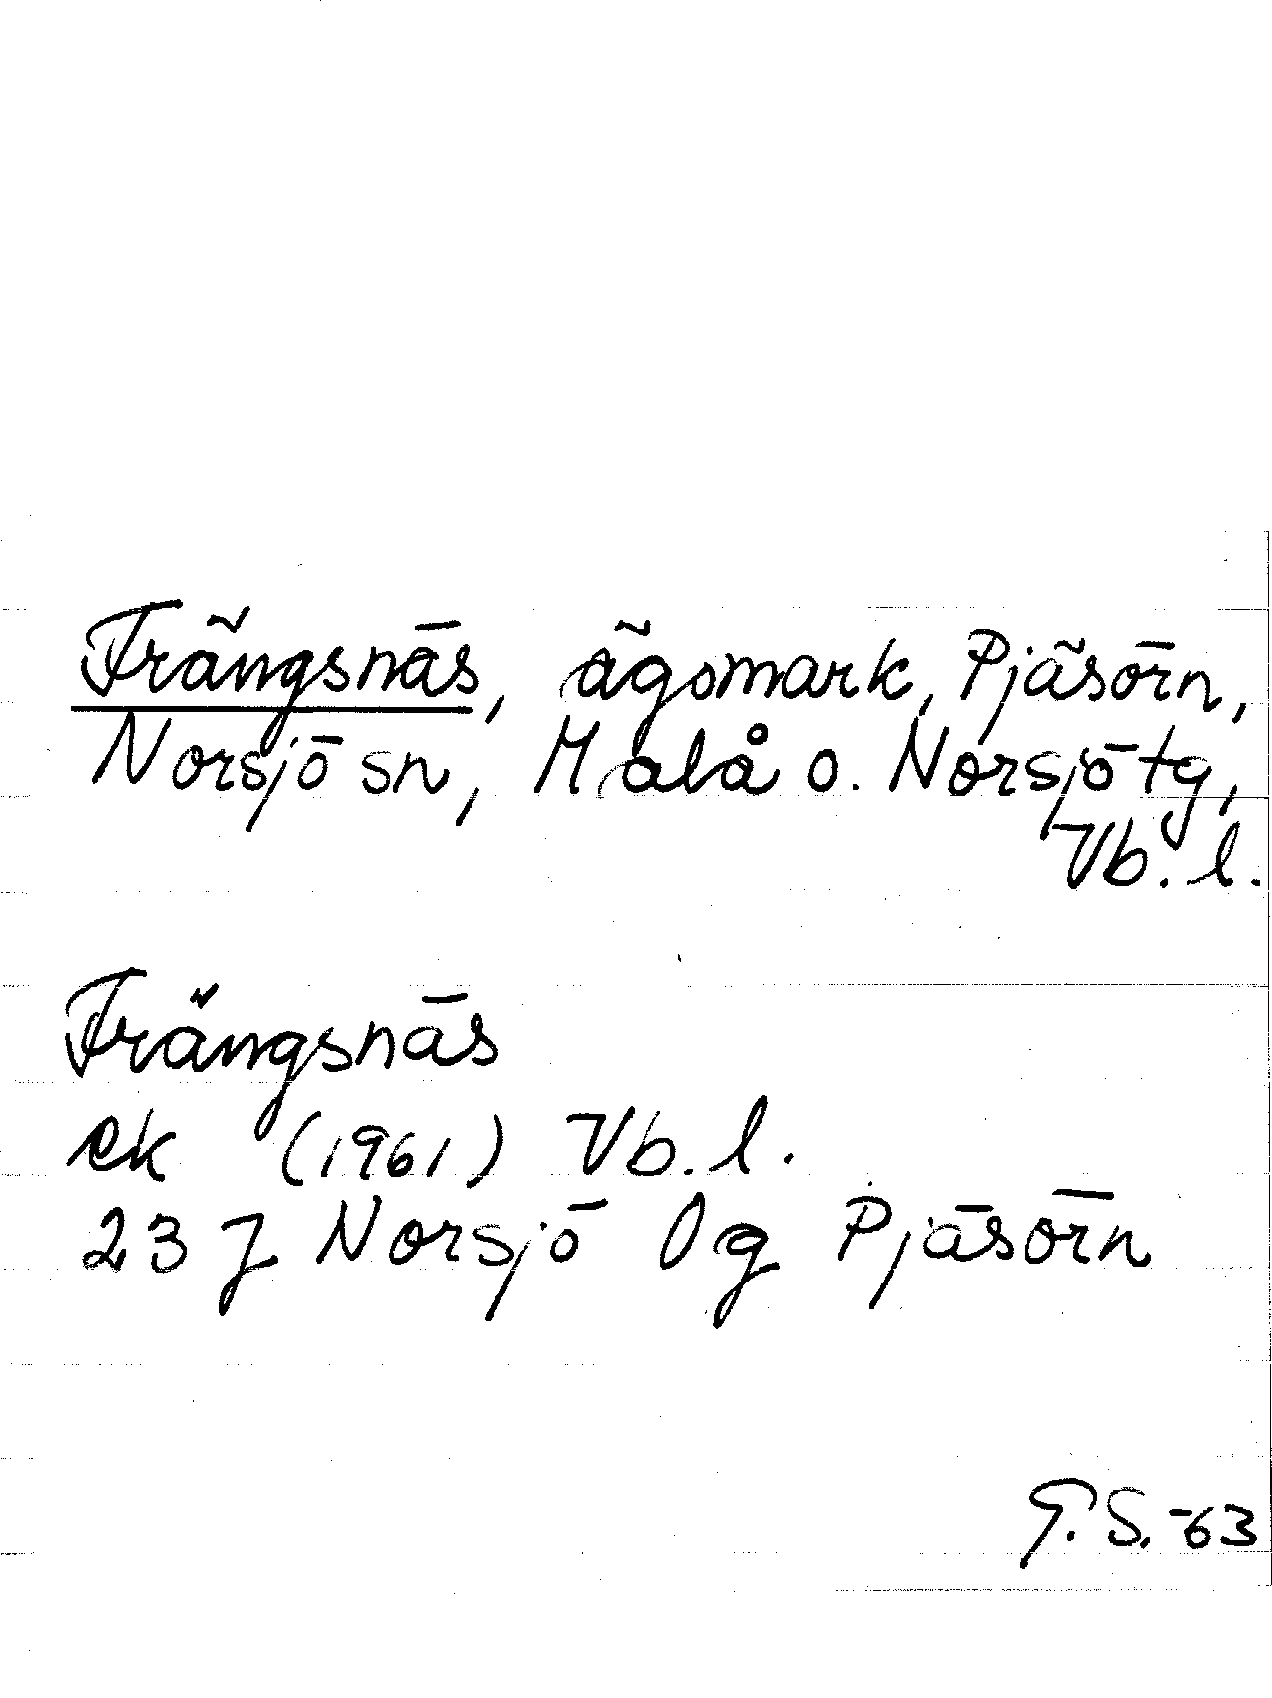 Frängsnäs, ägomark, Pjäsörn,
Norsjö sn, Malå o. Norsjö tg,
Vb. l.
Frängsnäs
ek (1961) Vb. l.
23 J Norsjö 0 g Pjäsörn
G. S. -63